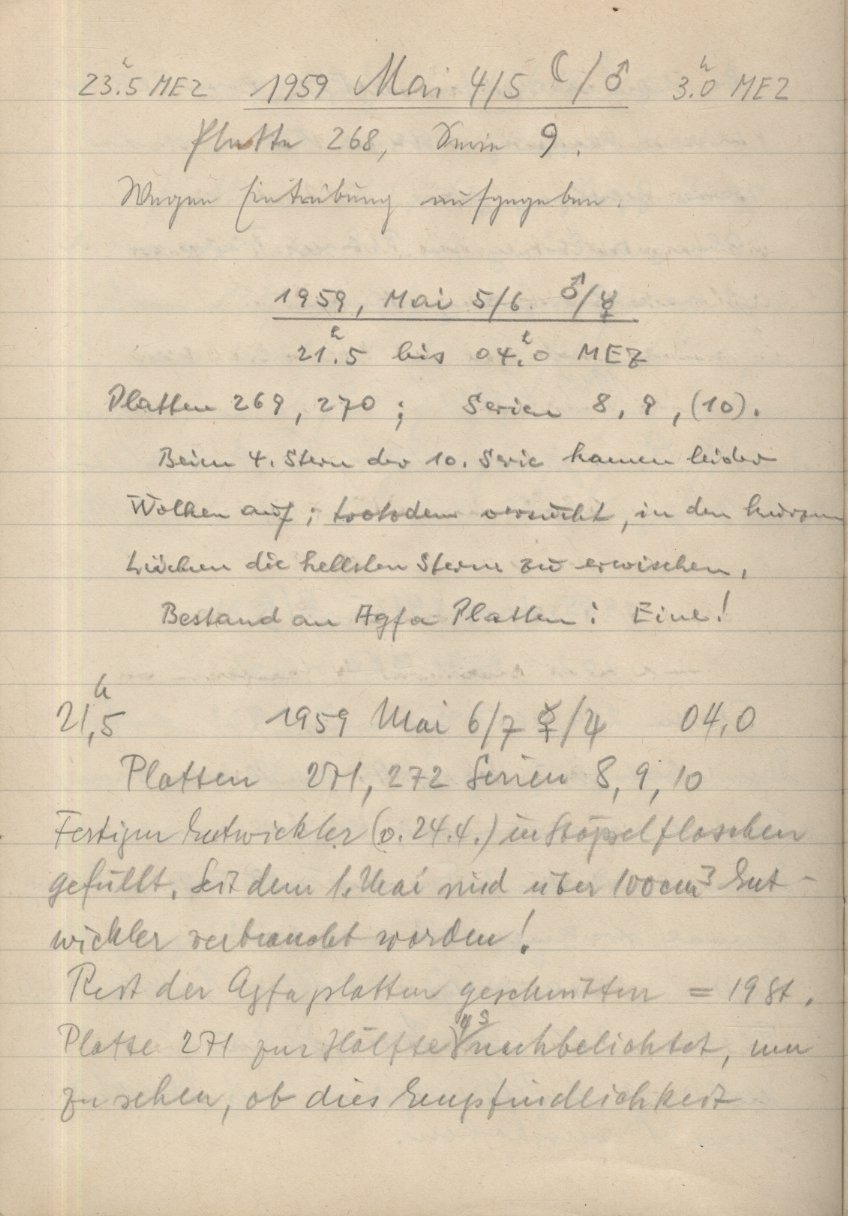 23.ʰ5 MEZ 1959 Mai 4/5 ☾/♂ 3.ʰ0 MEZ
Platte 268, Serie 9.
Wegen Eintrübung aufgegeben.
1959, Mai 5/6. ♂/☿
21.ʰ5 bis 04.ʰ0 MEZ
Platten 269, 270; Serien 8, 9, (10).
Beim 4. Stern der 10. Serie kamen leider
Wolken auf; trotzdem versucht, in den kurzen
Lücken die hellsten Sterne zu erwischen.
Bestand an Agfa Platten: Eine!
21,ʰ5 1959 Mai 6/7 ☿/♃ 04,0
Platten 271, 272 Serien 8, 9, 10
Fertigen Entwickler (v. 24.4.) in Stöpselflaschen
gefüllt. Seit dem 1. Mai sind über 100 cm³ Ent-
wickler verbraucht worden!
Rest der Agfaplatten geschnitten = 19 St.
Platte 271 zur Hälfte nachbelichtet, um
zu sehen, ob dies Empfindlichkeit